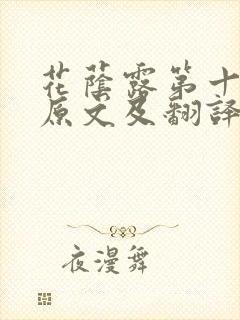 花蔭露第十
原文及翻譯
夜漫舞